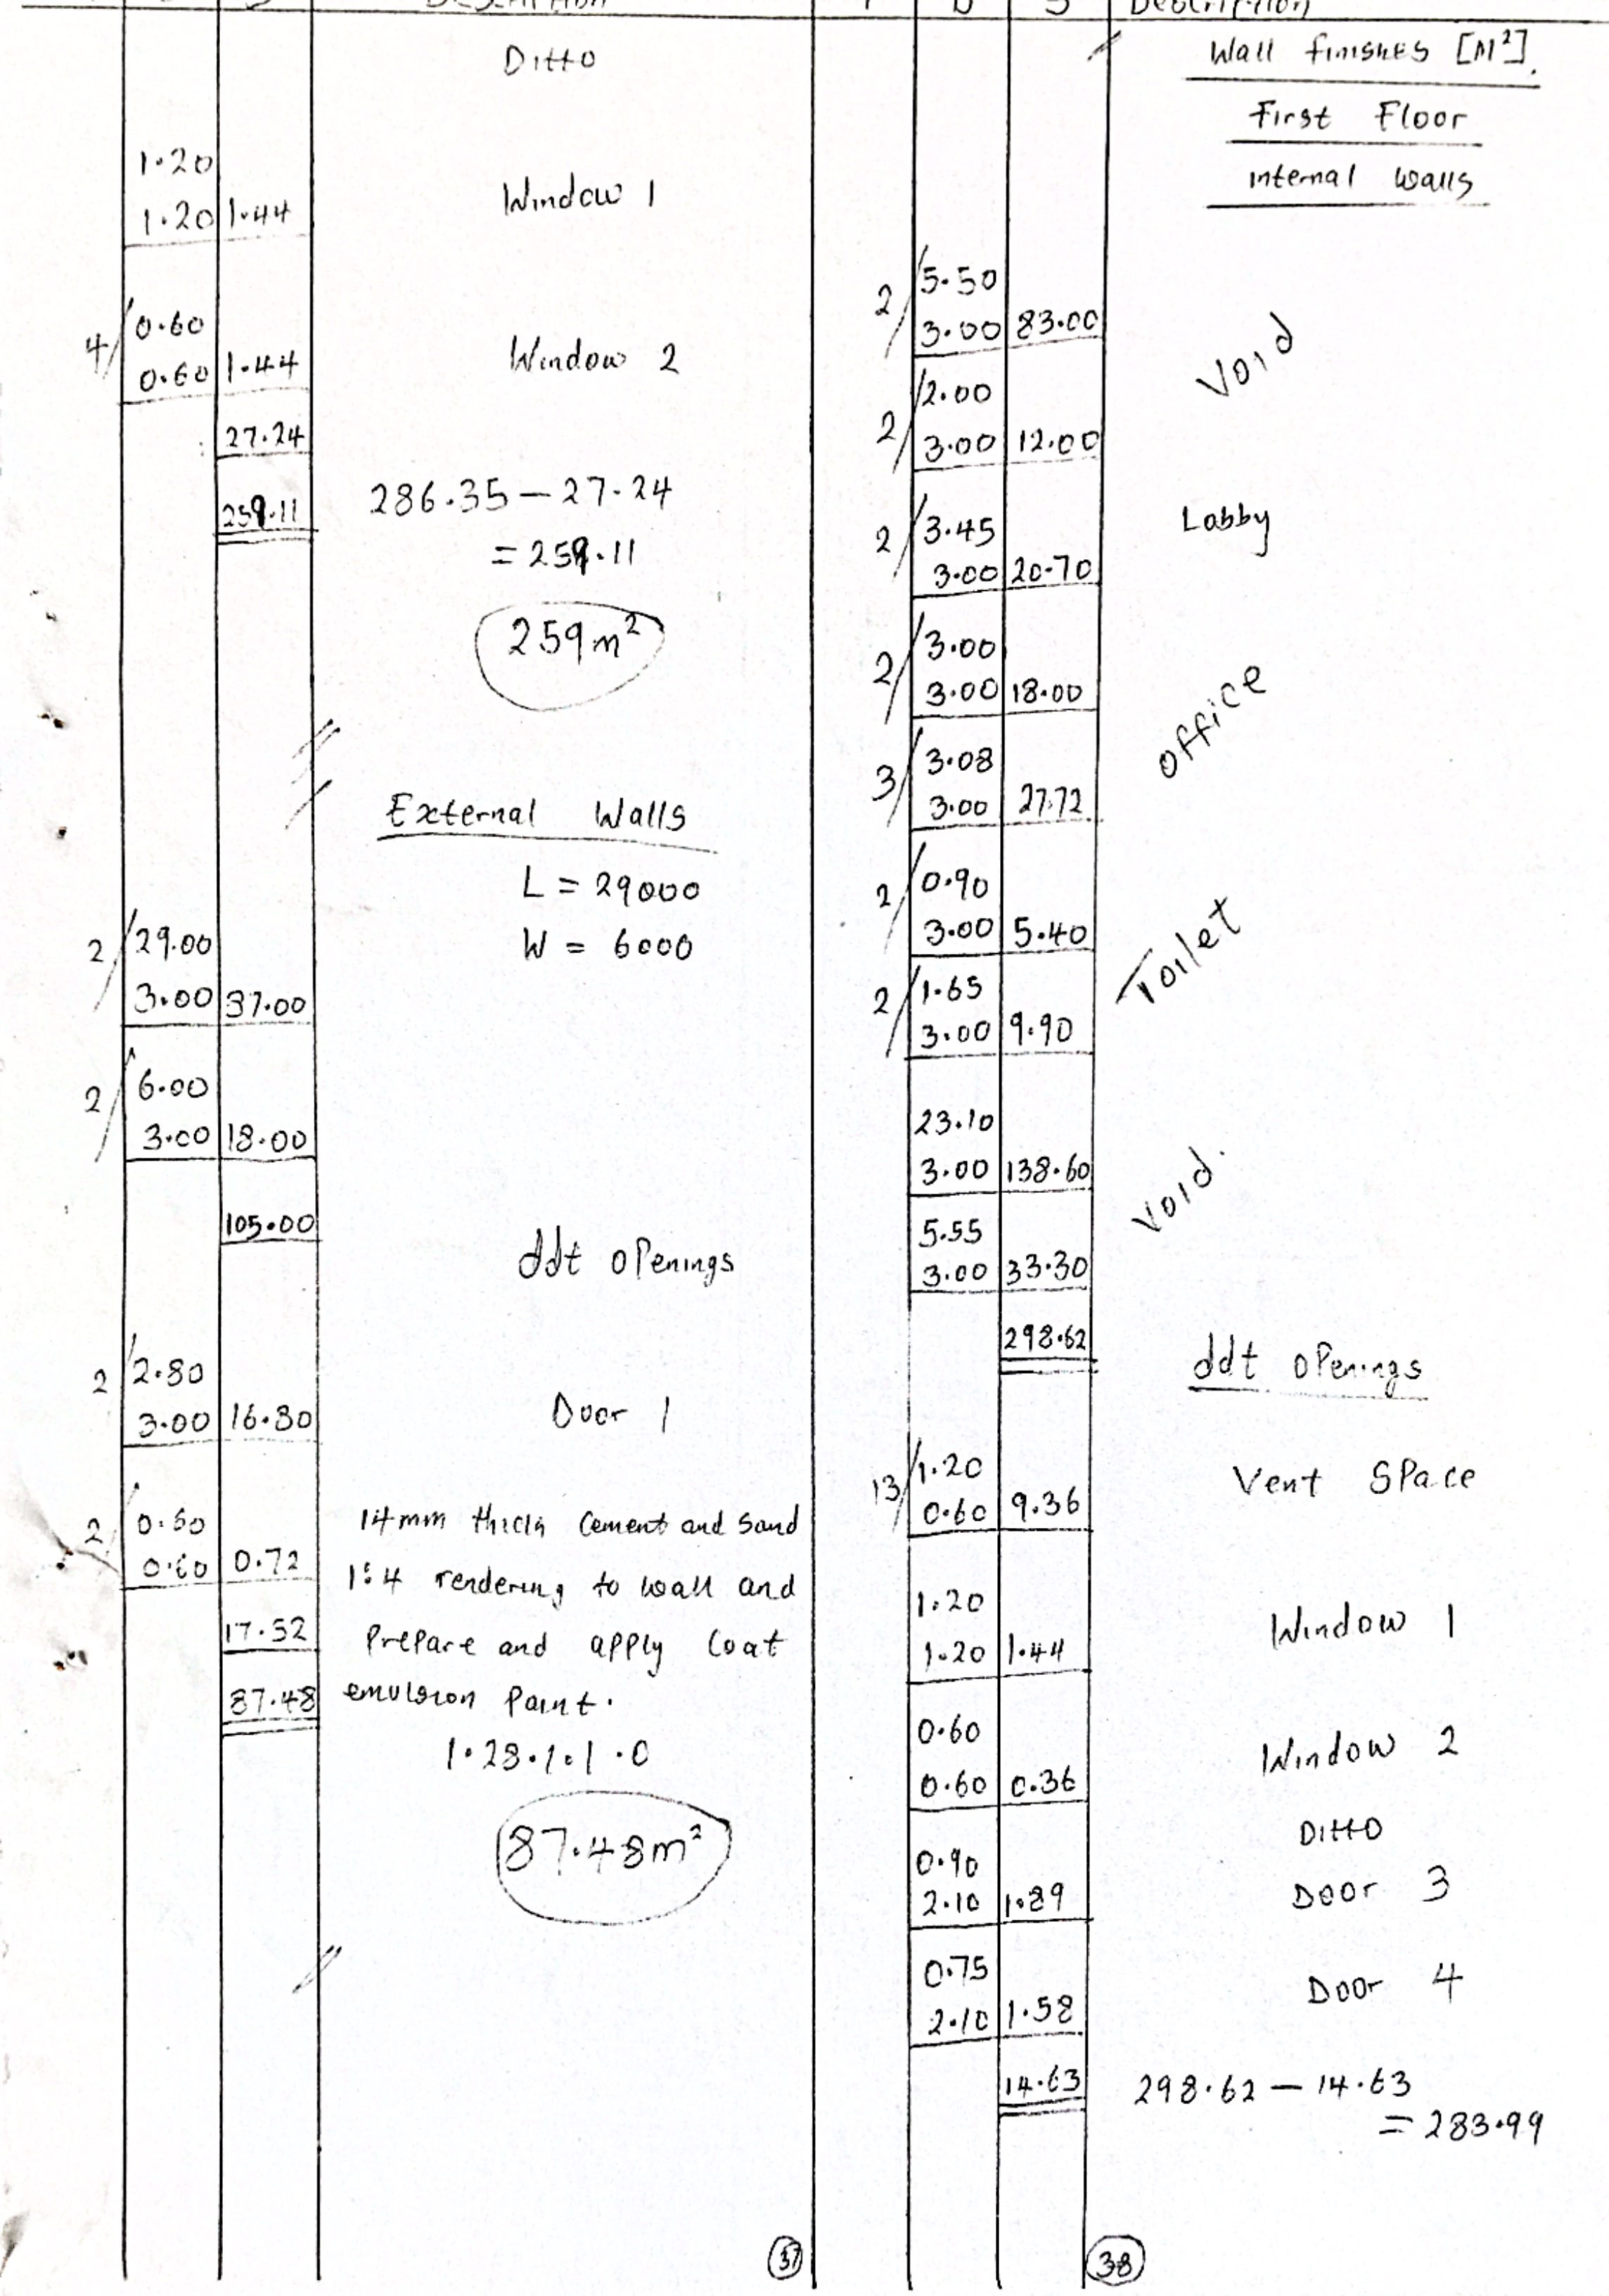 Description
Ditto
1.20
1.20 1.44 Window 1
4/ 0.60
0.60 1.44 Window 2
27.24
259.11 286.35 - 27.24
= 259.11
259m²
External Walls
L = 29000
W = 6000
2/ 29.00
3.00 87.00
2/ 6.00
3.00 18.00
105.00
ddt openings
2/ 2.80
3.00 16.80 Door 1
2/ 0.60
0.60 0.72
14mm thick cement and sand
1:4 rendering to wall and
17.52 prepare and apply coat
87.48 emulsion paint.
1.28.1.1.0
87.48m²
37
Description
Wall finishes [M²].
First Floor
internal walls
2/ 5.50
3.00 83.00
Void
2/ 2.00
3.00 12.00
2/ 3.45 Lobby
3.00 20.70
2/ 3.00
3.00 18.00
Office
3/ 3.08
3.00 27.72
2/ 0.90
3.00 5.40
Toilet
2/ 1.65
3.00 9.90
23.10
3.00 138.60
Void.
5.55
3.00 33.30
298.62
ddt openings
13/ 1.20 Vent Space
0.60 9.36
1.20
1.20 1.44 Window 1
0.60
0.60 0.36 Window 2
Ditto
0.90
2.10 1.89 Door 3
0.75
2.10 1.58 Door 4
14.63 298.62 - 14.63
= 283.99
38